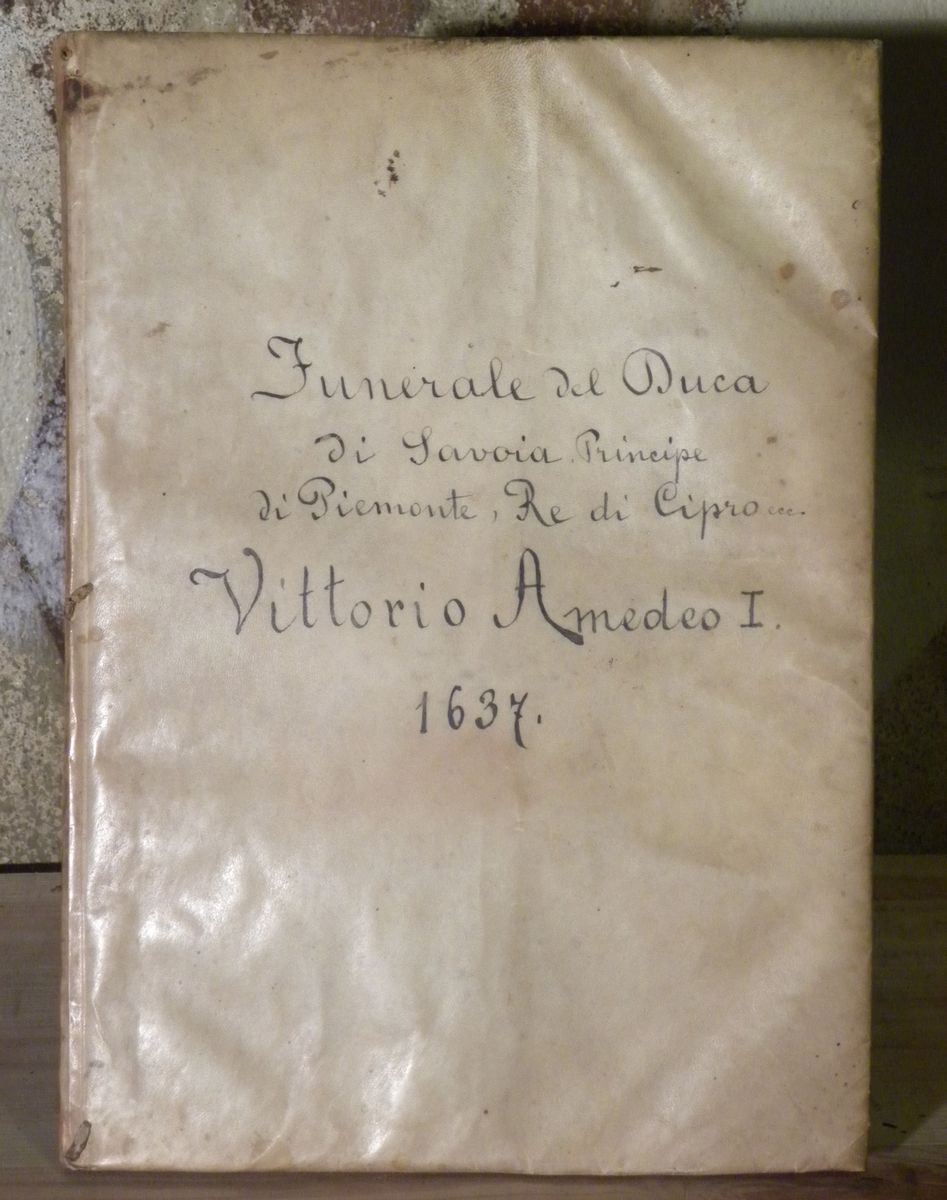 Funerale del Duca
di Savoia, Principe
di Piemonte, Re di Cipro ecc.
Vittorio Amedeo I.
1637.